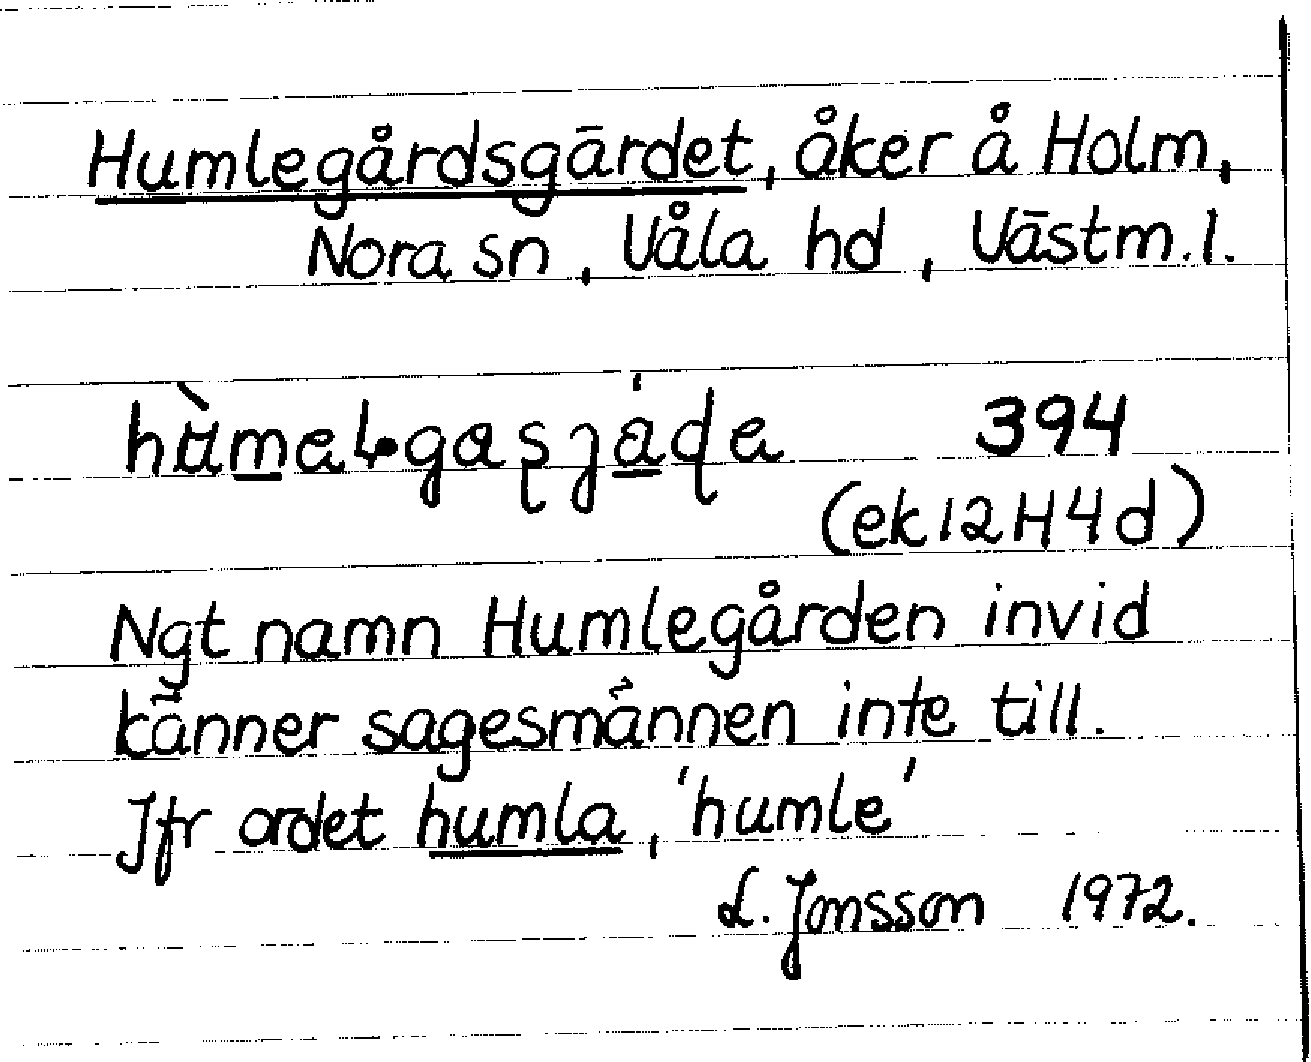 Humlegårdsgärdet, åker å Holm,
Nora sn, Våla hd, Västm.l.
394
(ek 12H4d)
Ngt namn Humlegården invid
känner sagesmännen inte till.
Jfr ordet humla, 'humle'
L. Jonsson 1972.